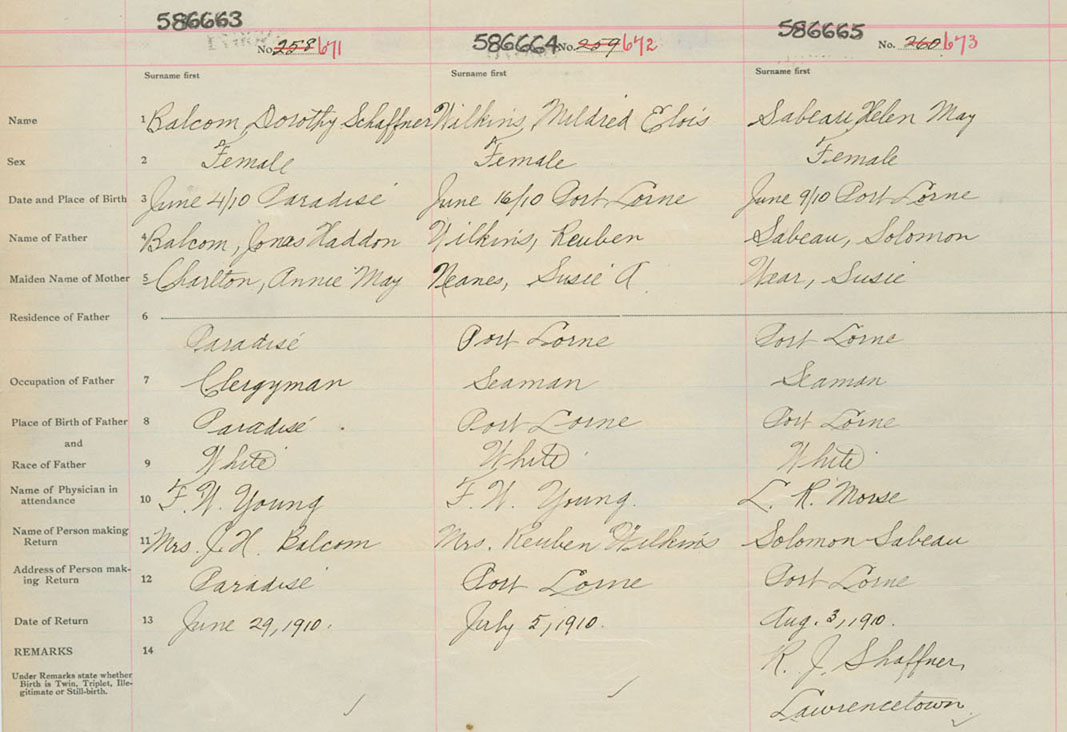 586663
586664
586665
No. 258 671
No. 259 672
No. 260 673
Surname first Surname first Surname first
Name 1 Balcom, Dorothy Schaffner Wilkins, Mildred Elois Sabeau, Helen May
Sex 2 Female Female Female
Date and Place of Birth 3 June 4/10 Paradise June 16/10 Port Lorne June 9/10 Port Lorne
Name of Father 4 Balcom, Jonas Haddon Wilkins, Reuben Sabeau, Solomon
Maiden Name of Mother 5 Charlton, Annie May Neanes, Susie A. Hear, Susie
Residence of Father 6
Paradise Port Lorne Port Lorne
Occupation of Father 7 Clergyman Seaman Seaman
Place of Birth of Father 8 Paradise. Port Lorne Port Lorne
and
Race of Father 9 White White White
Name of Physician in
attendance 10 F. W. Young F. W. Young. L. R. Morse
Name of Person making
Return 11 Mrs. J. H. Balcom Mrs. Reuben Wilkins Solomon Sabeau
Address of Person mak-
ing Return 12 Paradise Port Lorne Port Lorne
Date of Return 13 June 29, 1910. July 5, 1910. Aug. 3, 1910.
REMARKS 14 R. J. Shaffner,
Under Remarks state whether
Birth is Twin, Triplet, Ille-
gitimate or Still-birth.
Lawrencetown